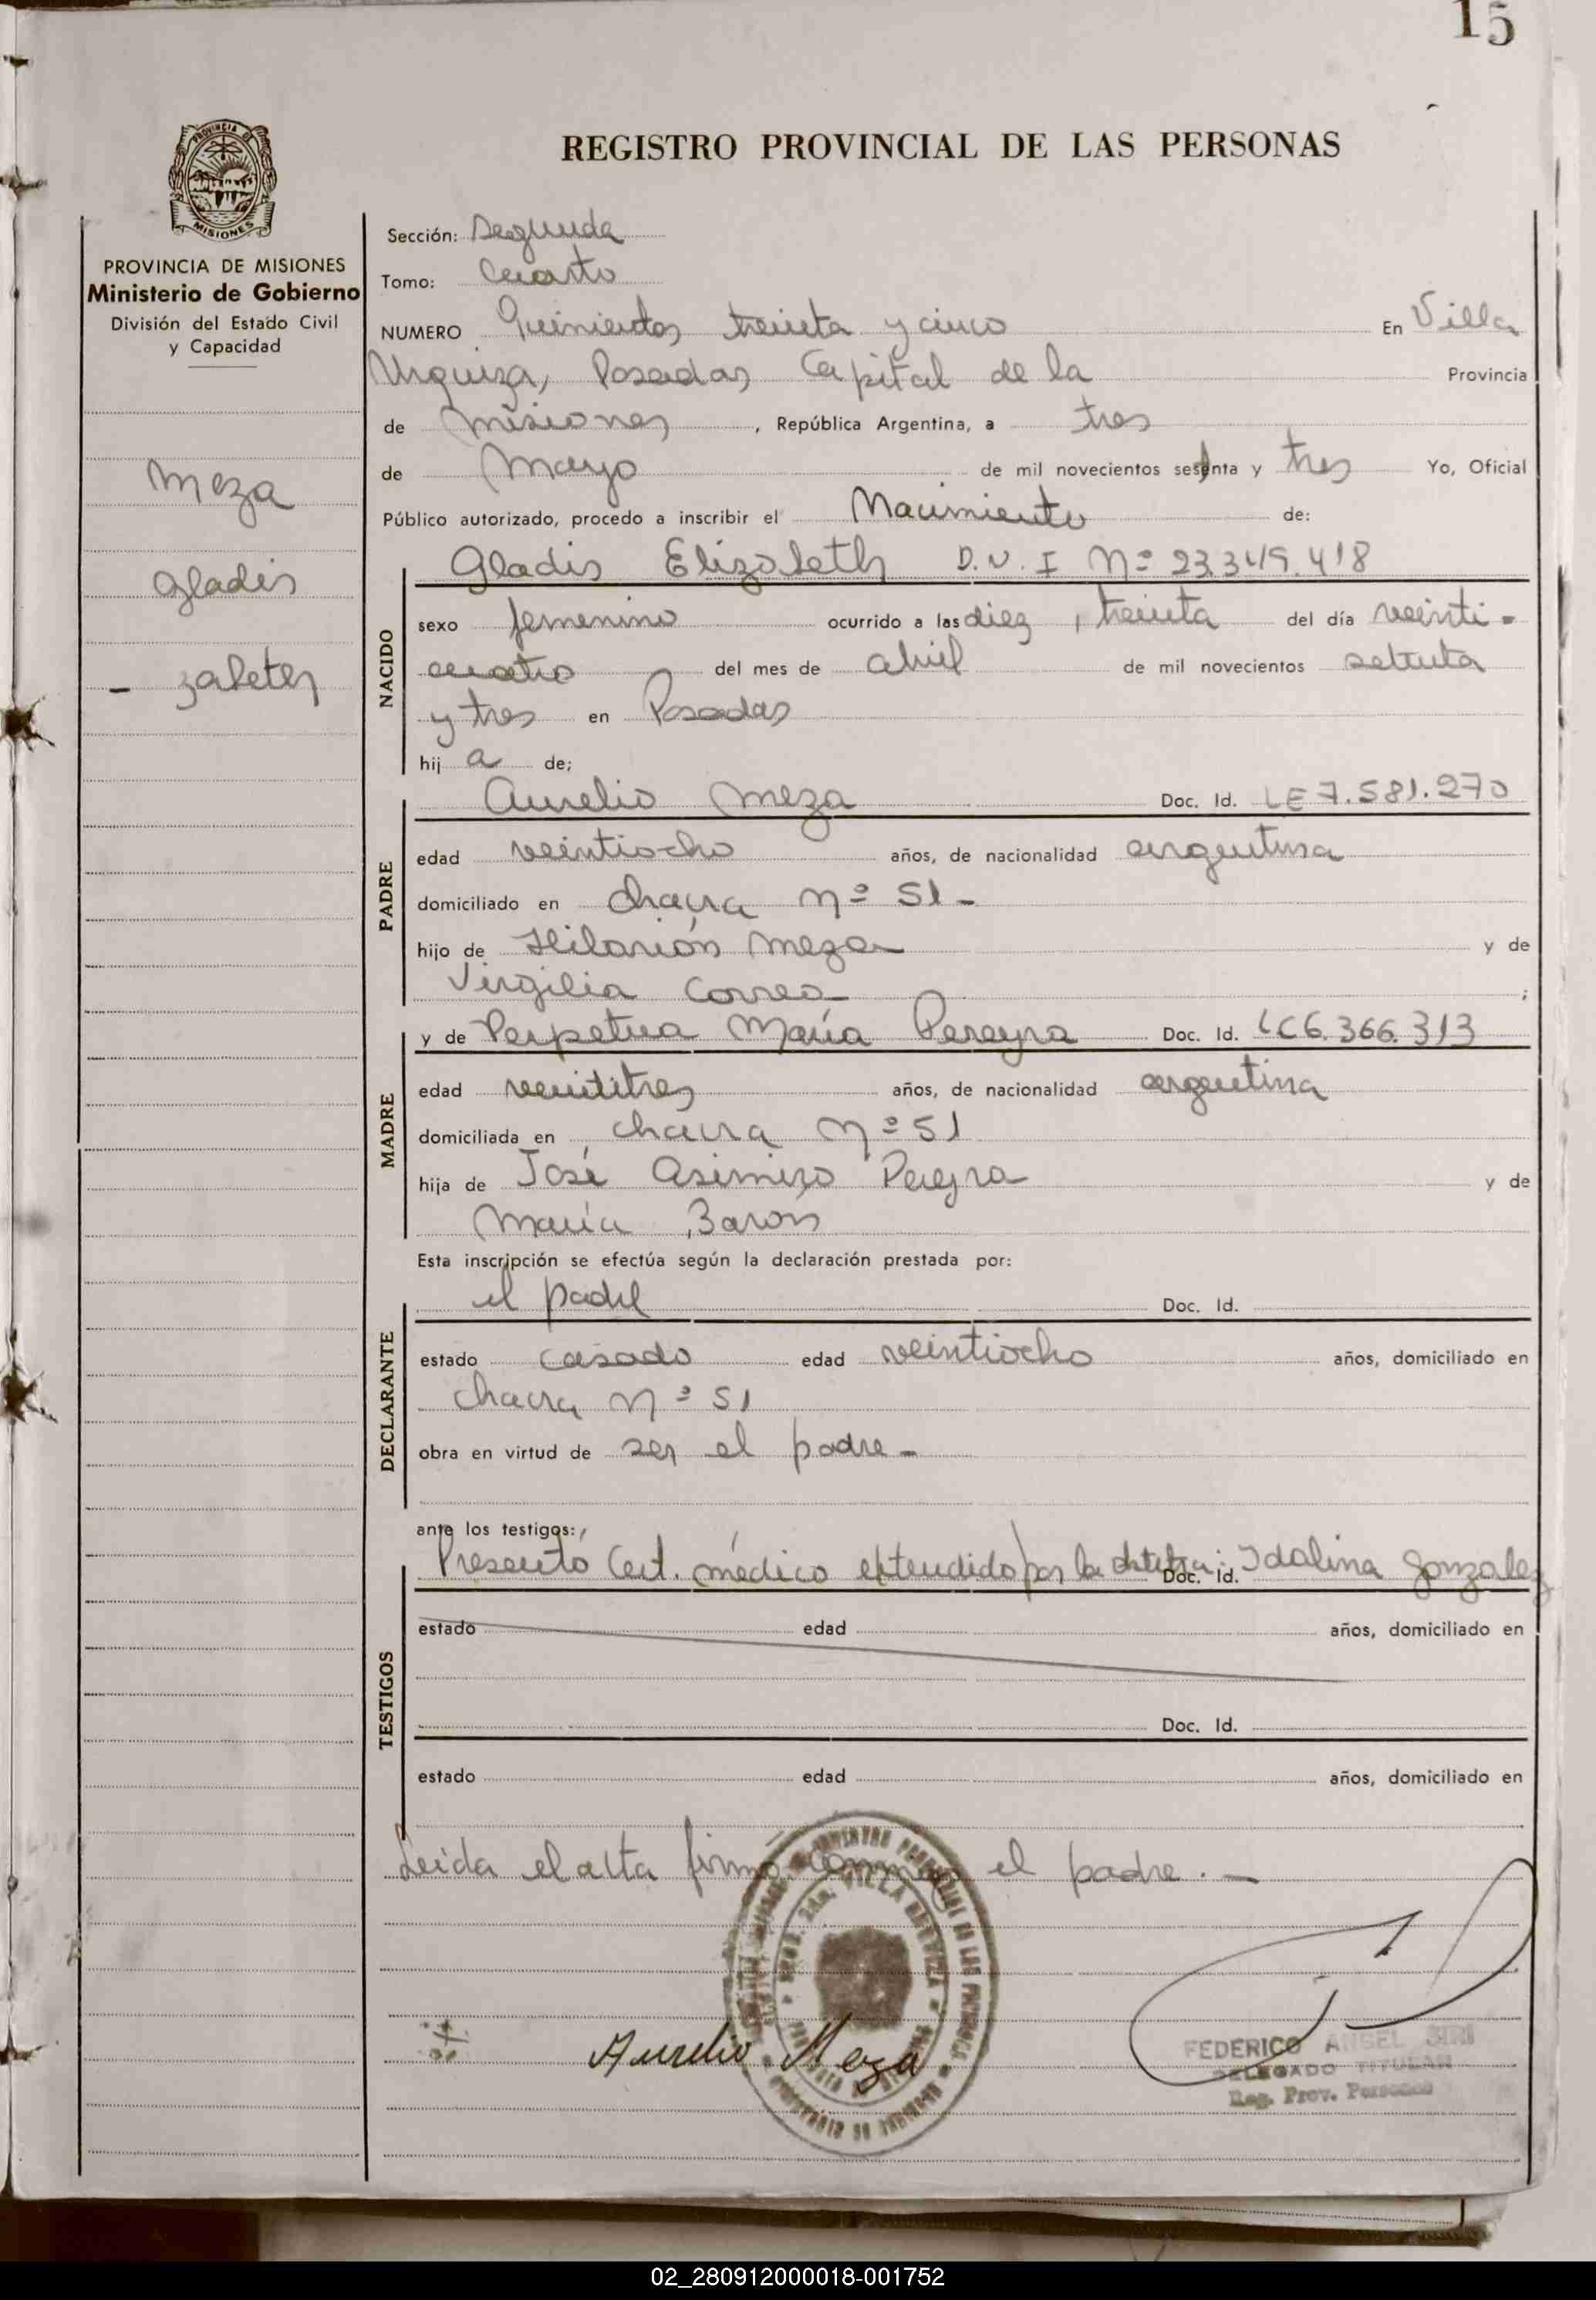 15
REGISTRO PROVINCIAL DE LAS PERSONAS
PROVINCIA DE
MISIONES
PROVINCIA DE MISIONES
Ministerio de Gobierno
División del Estado Civil
y Capacidad
Meza
Gladis
- zabeth
Sección: Segunda
Tomo: Cuarto
NUMERO Quinientos treinta y cinco En Villa
Urquiza, Posadas Capital de la Provincia
de Misiones, República Argentina, a tres
de Mayo de mil novecientos setenta y tres Yo, Oficial
Público autorizado, procedo a inscribir el Nacimiento de:
NACIDO
Gladis Elizabeth D.N.I Nº 23.349.418
sexo femenino ocurrido a las diez, treinta del día veinti-
cuatro del mes de abril de mil novecientos setenta
y tres en Posadas
hij a de;
PADRE
Aurelio Meza Doc. Id. LE 7.581.270
edad veintiocho años, de nacionalidad argentina
domiciliado en chacra nº 51-
hijo de Hilarión Meza y de
Virgilia Correa ;
MADRE
y de Perpetua María Pereyra Doc. Id. LC 6.366.313
edad veintitres años, de nacionalidad argentina
domiciliada en chacra nº 51
hija de José Asimizo Pereyra y de
María Barón
Esta inscripción se efectúa según la declaración prestada por:
DECLARANTE
el padre Doc. Id.
estado casado edad veintiocho años, domiciliado en
chacra nº 51
obra en virtud de ser el padre-
ante los testigos:
TESTIGOS
Presentó Cert. médico extendido por la Doc. Id. Idalina Gonzalez
estado edad años, domiciliado en
Doc. Id.
estado edad años, domiciliado en
Leida el acta firma conmigo el padre.-
Aurelio Meza
FEDERICO ANGEL SIRI
DELEGADO TITULAR
Reg. Prov. Personas
02_280912000018-001752